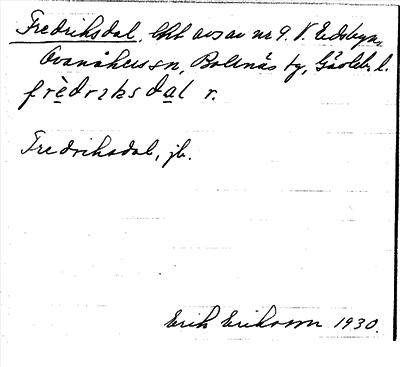 Fredriksdal, lht avs av nr 9. V. Edsbyn,
Ovanåkers sn, Bollnäs tg, Gävleb. l.
frèdrıksdal r.
Fredriksdal, jb.
Erik Erikson 1930.